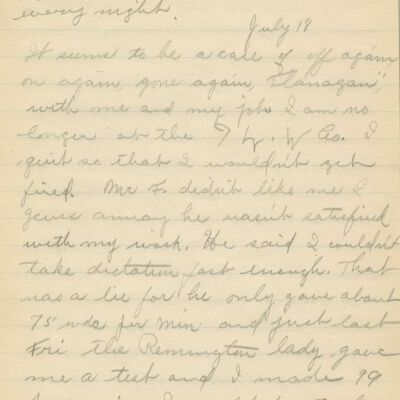 every night.
July 18
It seems to be a case of "off again,
on again, gone again, Flanagan",
with me and my job. I am no
longer at the F. L. W Co. I
quit so that I wouldn't get
fired. Mr F. didn't like me I
guess anyway he wasn't satisfied
with my work. He said I couldn't
take dictation fast enough. That
was a lie for he only gave about
75 wds per min and just last
Fri the Remington lady gave
me a test and I made 99